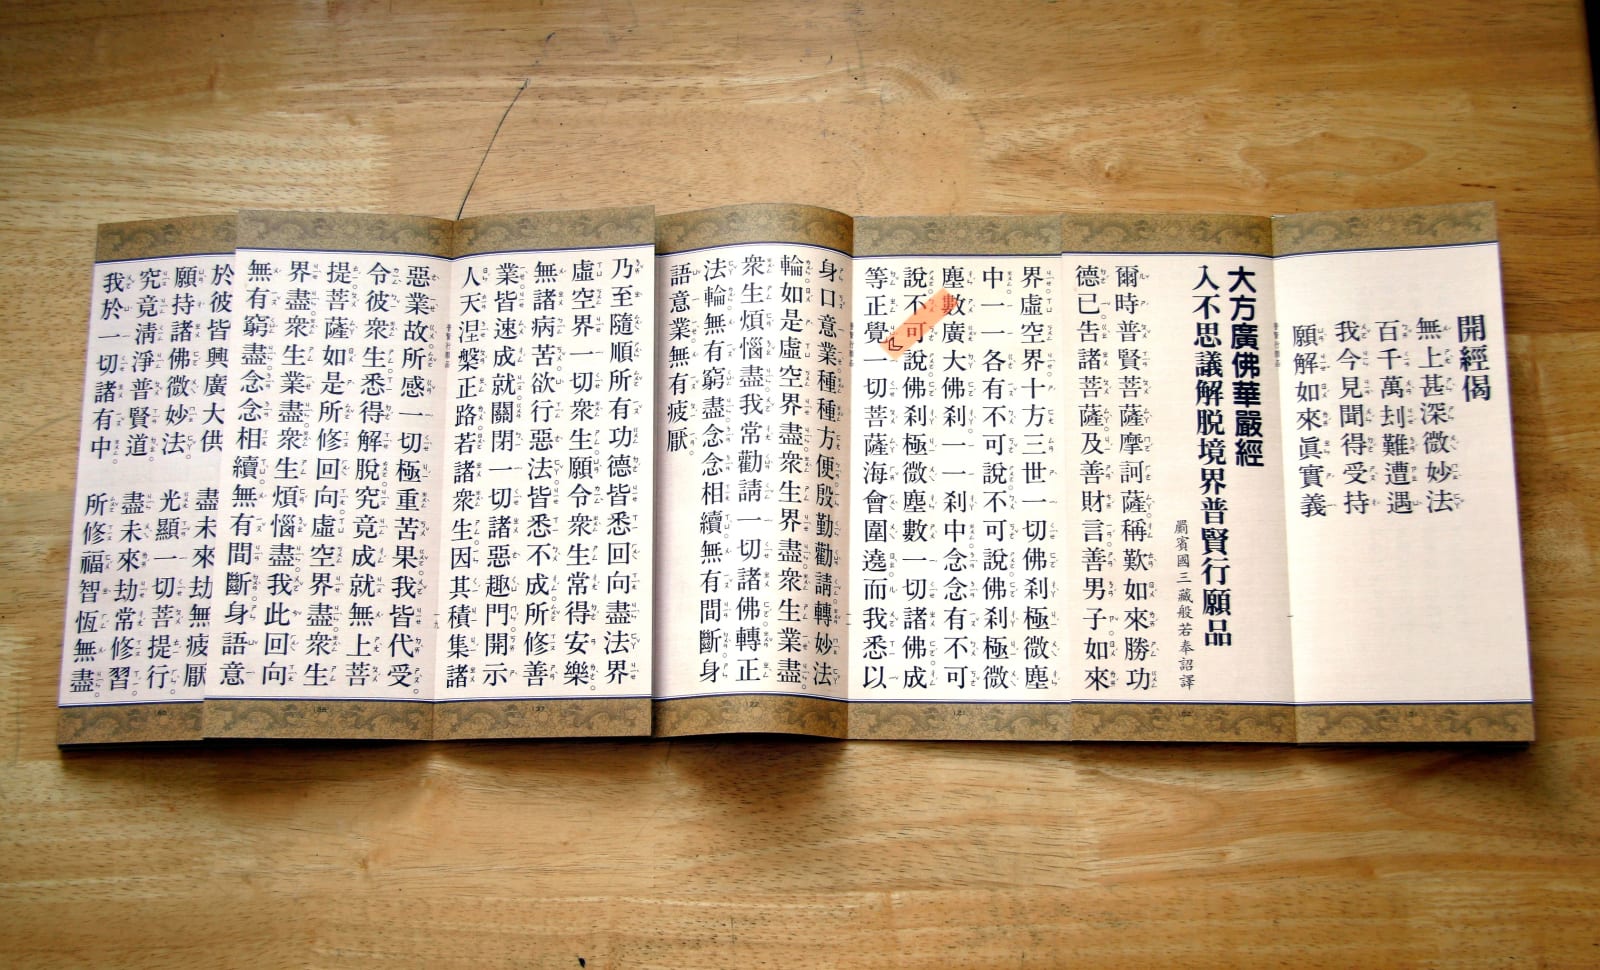 開經偈
無上甚深微妙法
百千萬刦難遭遇
我今見聞得受持
願解如來眞實義
大方廣佛華嚴經
入不思議解脱境界普賢行願品
罽賓國三藏般若奉詔譯
爾時普賢菩薩摩訶薩。稱歎如來勝功
德已。告諸菩薩及善財言。善男子。如來
界虛空界。十方三世一切佛剎極微塵
中。一一各有不可說不可說佛剎極微
塵數廣大佛剎。一一剎中。念念有不可
說不可說佛剎極微塵數一切諸佛成
等正覺。一切菩薩海會圍遶。而我悉以
身口意業。種種方便。殷勤勸請轉妙法
輪。如是虛空界盡。衆生界盡。衆生業盡。
衆生煩惱盡。我常勸請一切諸佛轉正
法輪。無有窮盡。念念相續。無有間斷。身
語意業。無有疲厭。
乃至隨順所有功德。皆悉回向盡法界
虛空界一切衆生。願令衆生常得安樂。
無諸病苦。欲行惡法。皆悉不成。所修善
業。皆速成就。關閉一切諸惡趣門。開示
人天涅槃正路。若諸衆生。因其積集諸
惡業故。所感一切極重苦果。我皆代受。
令彼衆生。悉得解脱。究竟成就無上菩
提。菩薩如是所修回向。虛空界盡。衆生
界盡。衆生業盡。衆生煩惱盡。我此回向
無有窮盡。念念相續。無有間斷。身語意
於彼皆興廣大供 盡未來劫無疲厭
願持諸佛微妙法。光顯一切菩提行。
究竟清淨普賢道。盡未來劫常修習。
我於一切諸有中。所修福智恆無盡。